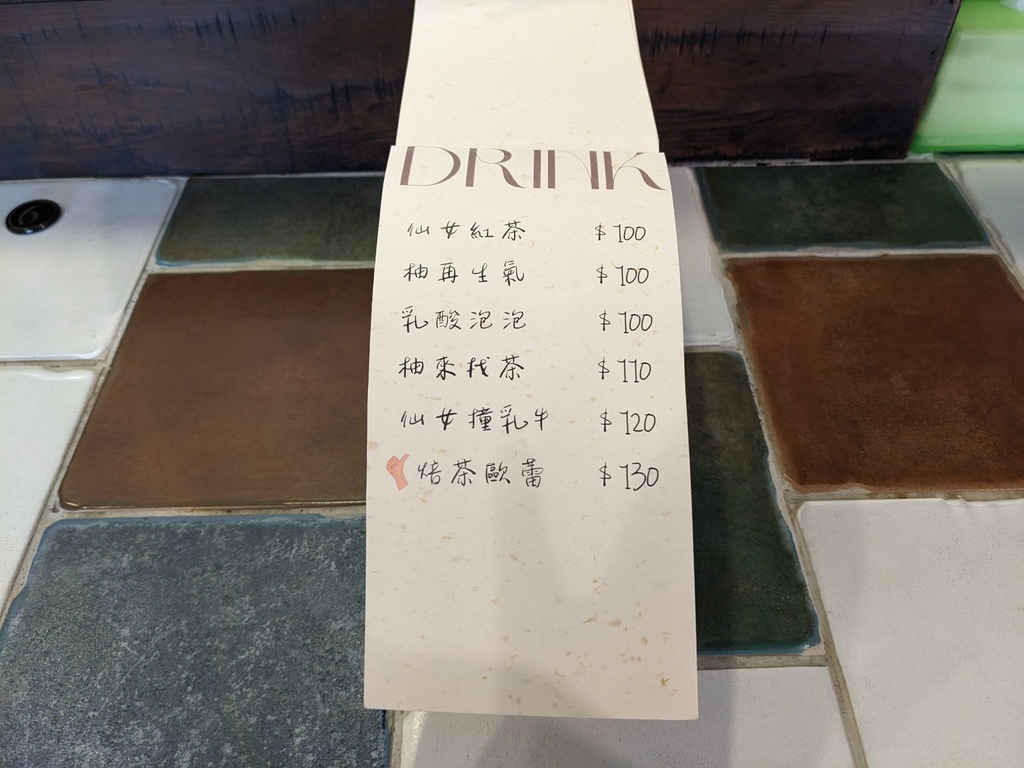 DRINK
仙女紅茶 $100
柚再生氣 $100
乳酸泡泡 $100
柚來找茶 $110
仙女撞乳牛 $120
焙茶歐蕾 $130
6